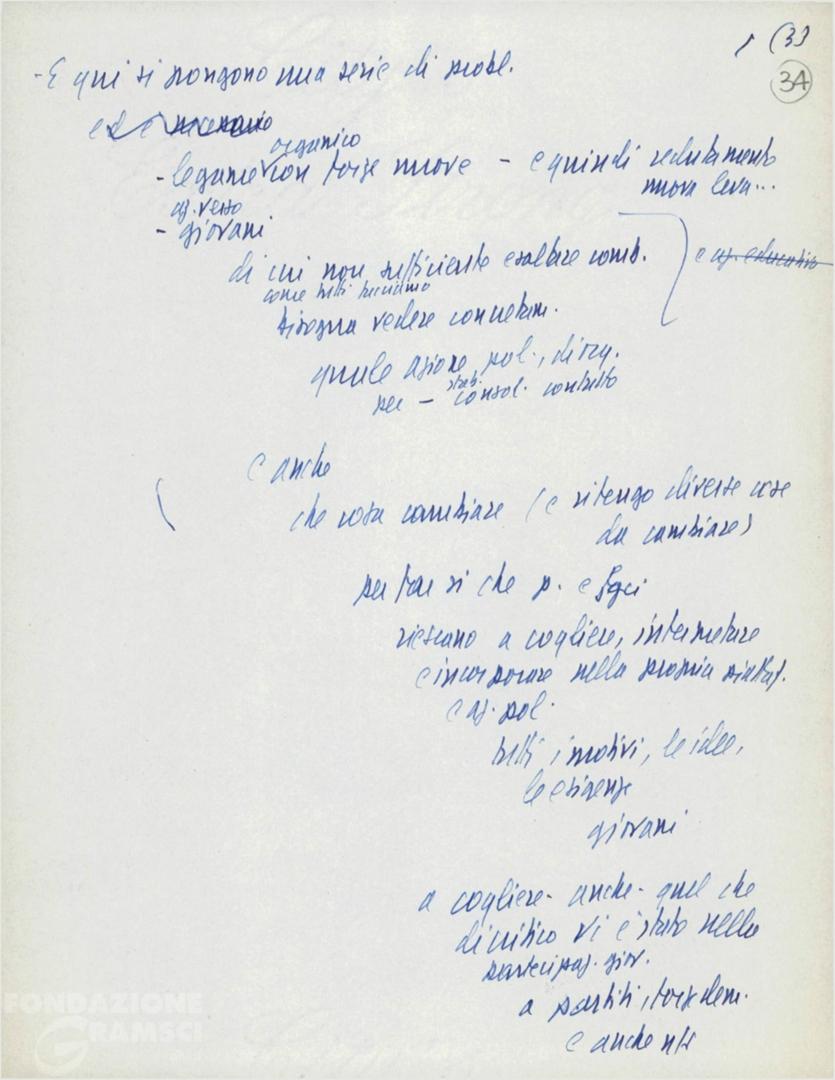 (33
34
- E qui si pongono una serie di probl.
ed è necessario
organico
- legame con forze nuove - e quindi reclutamento
nuova leva...
az. verso
- giovani
di cui non sufficiente esaltare comb.
e az. educativa
come tutti facciamo
bisogna vedere concretam.
quale azione pol., di org.
per - consol. contatto
e anche
che cosa cambiare (e ritengo diverse cose
da cambiare)
per far sì che p. e Fgci
riescano a cogliere, interpretare
e incorporare nella propria piattaf.
e az. pol.
tutti i motivi, le idee,
le esigenze
giovani
a cogliere - anche - quel che
di critico vi è stato nella
partecipaz. giov.
a partiti, forze dem.
e anche ns
FONDAZIONE
GRAMSCI